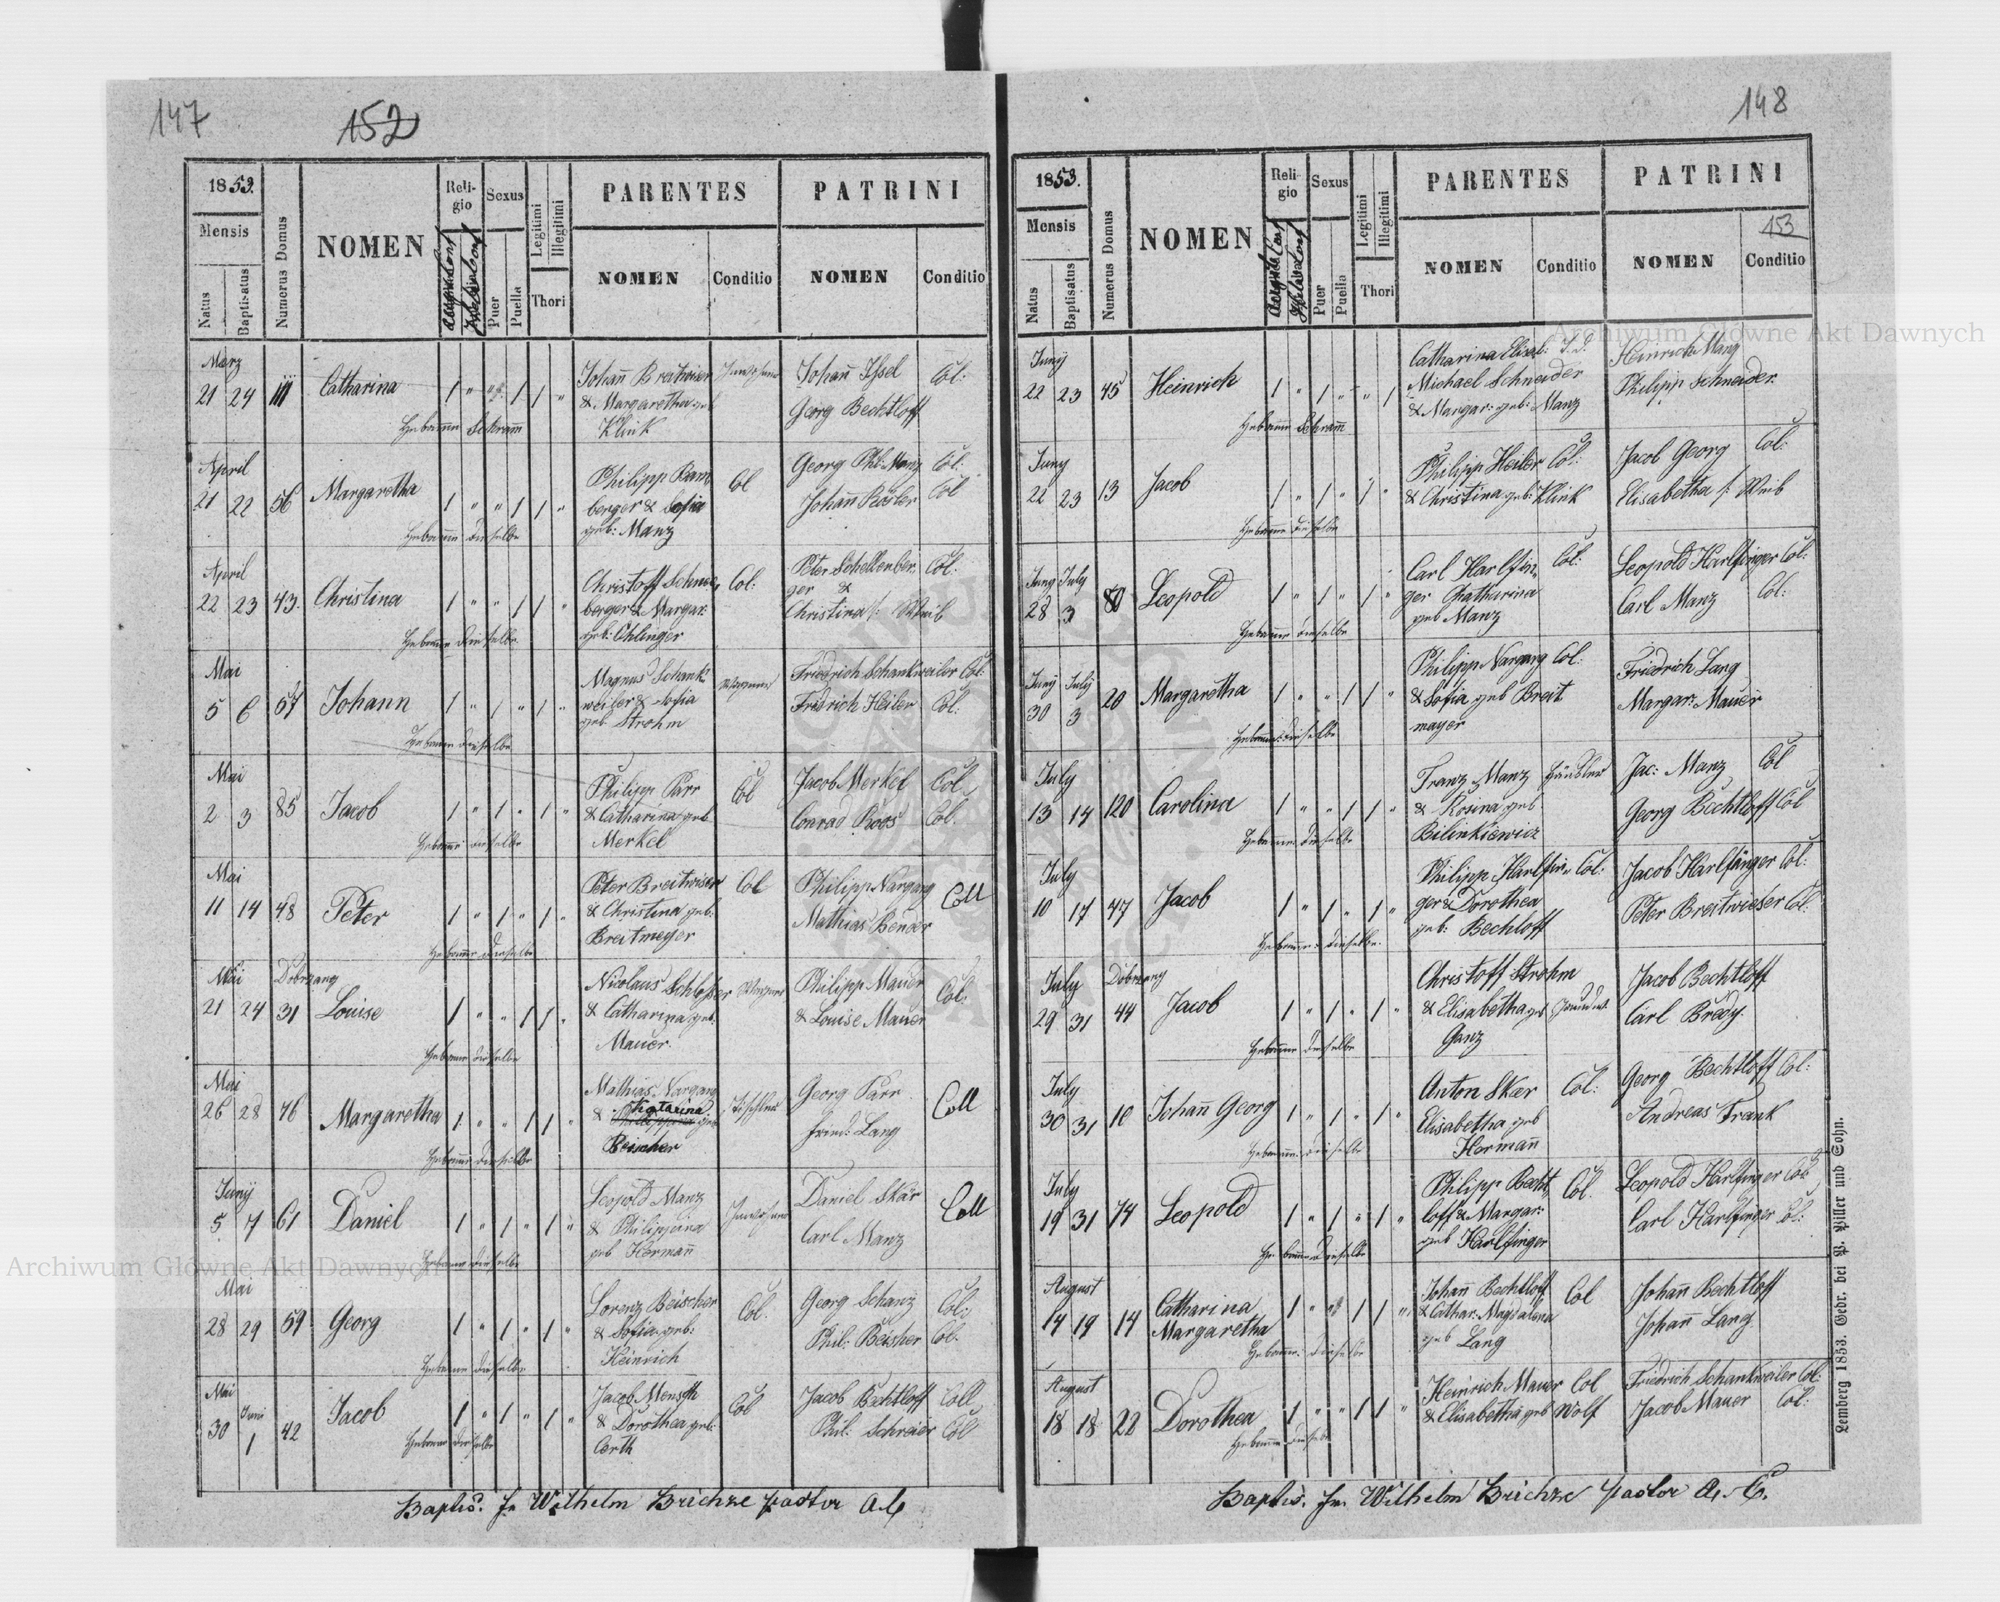 147
152
1853.
Mensis
Natus
Baptisatus
Numerus Domus
NOMEN
Religio
Sexus
Puer
Puella
Legitimi
Illegitimi
Thori
PARENTES
NOMEN
Conditio
PATRINI
NOMEN
Conditio
März
21 24 111 Catharina 1 " " 1 1 "
Johann Breitwiser
& Margaretha geb
Klink
Johann Issel Col:
Georg Bechtloff
Hebamme Schramm
April
21 22 56 Margaretha 1 " " 1 1 "
Philipp Ram
berger & Sofia
geb: Manz
Col
Georg Phil: Manz Col:
Johann Koster Col
Hebamme dieselbe
April
22 23 43. Christina 1 " " 1 1 "
Christoff Schnee
berger & Margar:
geb: Ohlinger
Col:
Peter Schellenber: Col.
ger &
Christina /: Weib
Hebamme dieselbe
Mai
5 6 67 Johann 1 " 1 " 1 "
Magnus Schank
weiler & Sofia
geb Strohm
Wagner
Friedrich Schankweiler Col:
Fridrich Heiler Col:
Hebamme dieselbe
Mai
2 3 85 Jacob 1 " 1 " 1 "
Philipp Parr
& Catharina geb
Merkel
Col
Jacob Merkel Col.
Conrad Roos Col.
Hebamme dieselbe
Mai
11 14 48 Peter 1 " 1 " 1 "
Peter Breitwiser
& Christina geb:
Breitmeyer
Col
Philipp Nargang
Mathias Bender
Coll
Hebamme dieselbe
Mai Dobrzang
21 24 31 Louise 1 " " 1 1 "
Nicolaus Schloßer
& Catharina geb:
Mauer.
Wagner
Philipp Mauer
& Louise Mauer
Col:
Hebamme dieselbe
Mai
26 28 76 Margaretha 1 " " 1 1 "
Mathias Nargang
& Chatarina geb
Beischer
Tischler
Georg Parr
Fried: Lang
Coll
Hebamme dieselbe
Juny
5 7 61 Daniel 1 " 1 " 1 "
Leopold Manz
& Philippina
geb Hermann
Daniel Skär
Carl Manz
Coll
Hebamme dieselbe
Mai
28 29 59 Georg 1 " 1 " 1 "
Lorenz Beischer
& Sofia geb:
Heinrich
Col.
Georg Schanz Col:
Phil: Beisher Col.
Hebamme dieselbe
Mai Juni
30 1 42 Jacob 1 " 1 " 1 "
Jacob Mensch
& Dorothea geb:
Corth
Col
Jacob Bechtloff Coll
Phil: Schreier Col
Hebamme dieselbe
Baptis. Fr Wilhelm Brichze pastor A.C
148
153
1853.
Mensis
Natus
Baptisatus
Numerus Domus
NOMEN
Religio
Sexus
Puer
Puella
Legitimi
Illegitimi
Thori
PARENTES
NOMEN
Conditio
PATRINI
NOMEN
Conditio
Juny
22 23 45 Heinrich 1 " 1 " " 1
Catharina Elisab: T. d.
Michael Schneider
& Margar: geb: Manz
Heinrich Manz
Philipp Schneider.
Hebamme Schramm
Juny
22 23 13 Jacob 1 " 1 " 1 "
Philipp Heiler Col:
& Christina geb: Klink
Jacob Georg Col:
Elisabetha /: Weib
Hebamme dieselbe
Juny July
28 3 80 Leopold 1 " 1 " 1 "
Carl Harlfin Col:
ger Chatharina
geb Manz
Leopold Harlfinger Col:
Carl Manz Col:
Hebamme dieselbe
Juny July
30 3 20 Margaretha 1 " " 1 1 "
Philipp Nargang Col:
& Sofia geb Breit
mayer
Friedrich Lang
Margar: Mauer
Hebamme dieselbe
July
13 14 120 Carolina 1 " " 1 1 "
Franz Manz Häusler
& Rosina geb
Bilinkiewicz
Jac: Manz Col
Georg Bechtloff Col
Hebamme dieselbe
July
10 17 47 Jacob 1 " 1 " 1 "
Philipp Harlfin Col:
ger & Dorothea
geb: Bechloff
Jacob Harlfinger Col:
Peter Breitwieser Col:
Hebamme dieselbe.
July Dobrzany
29 31 44 Jacob 1 " 1 " 1 "
Christoff Strohm
& Elisabetha geb
Ganz
Jacob Bechtloff
Carl Brödy.
Hebamme dieselbe
July
30 31 10 Johann Georg 1 " 1 " 1 "
Anton Skær Col:
Elisabetha geb
Hermann
Georg Bechtloff Col:
Andreas Frank
Hebamme dieselbe
July
19 31 74 Leopold 1 " 1 " 1 "
Philipp Becht Col.
loff & Margar:
geb Harlfinger
Leopold Harlfinger Col
Carl Harlfinger Col:
Hebamme dieselbe
August
14 19 14 Catharina
Margaretha 1 " " 1 1 "
Johann Bechtloff Col
& Cathar: Magdalena
geb Lang
Johann Bechtloff
Johann Lang
Hebamme: dieselbe
August
18 18 22 Dorothea 1 " " 1 1 "
Heinrich Mauer Col
& Elisabetha geb Wolf
Friedrich Schankweiler Col:
Jacob Mauer Col:
Hebamme dieselbe
Baptis. Fr. Wilhelm Brichze pastor A. C.
Lemberg 1853. Gedr. bei P. Piller und Sohn.
Archiwum Główne Akt Dawnych
Archiwum Główne Akt Dawnych